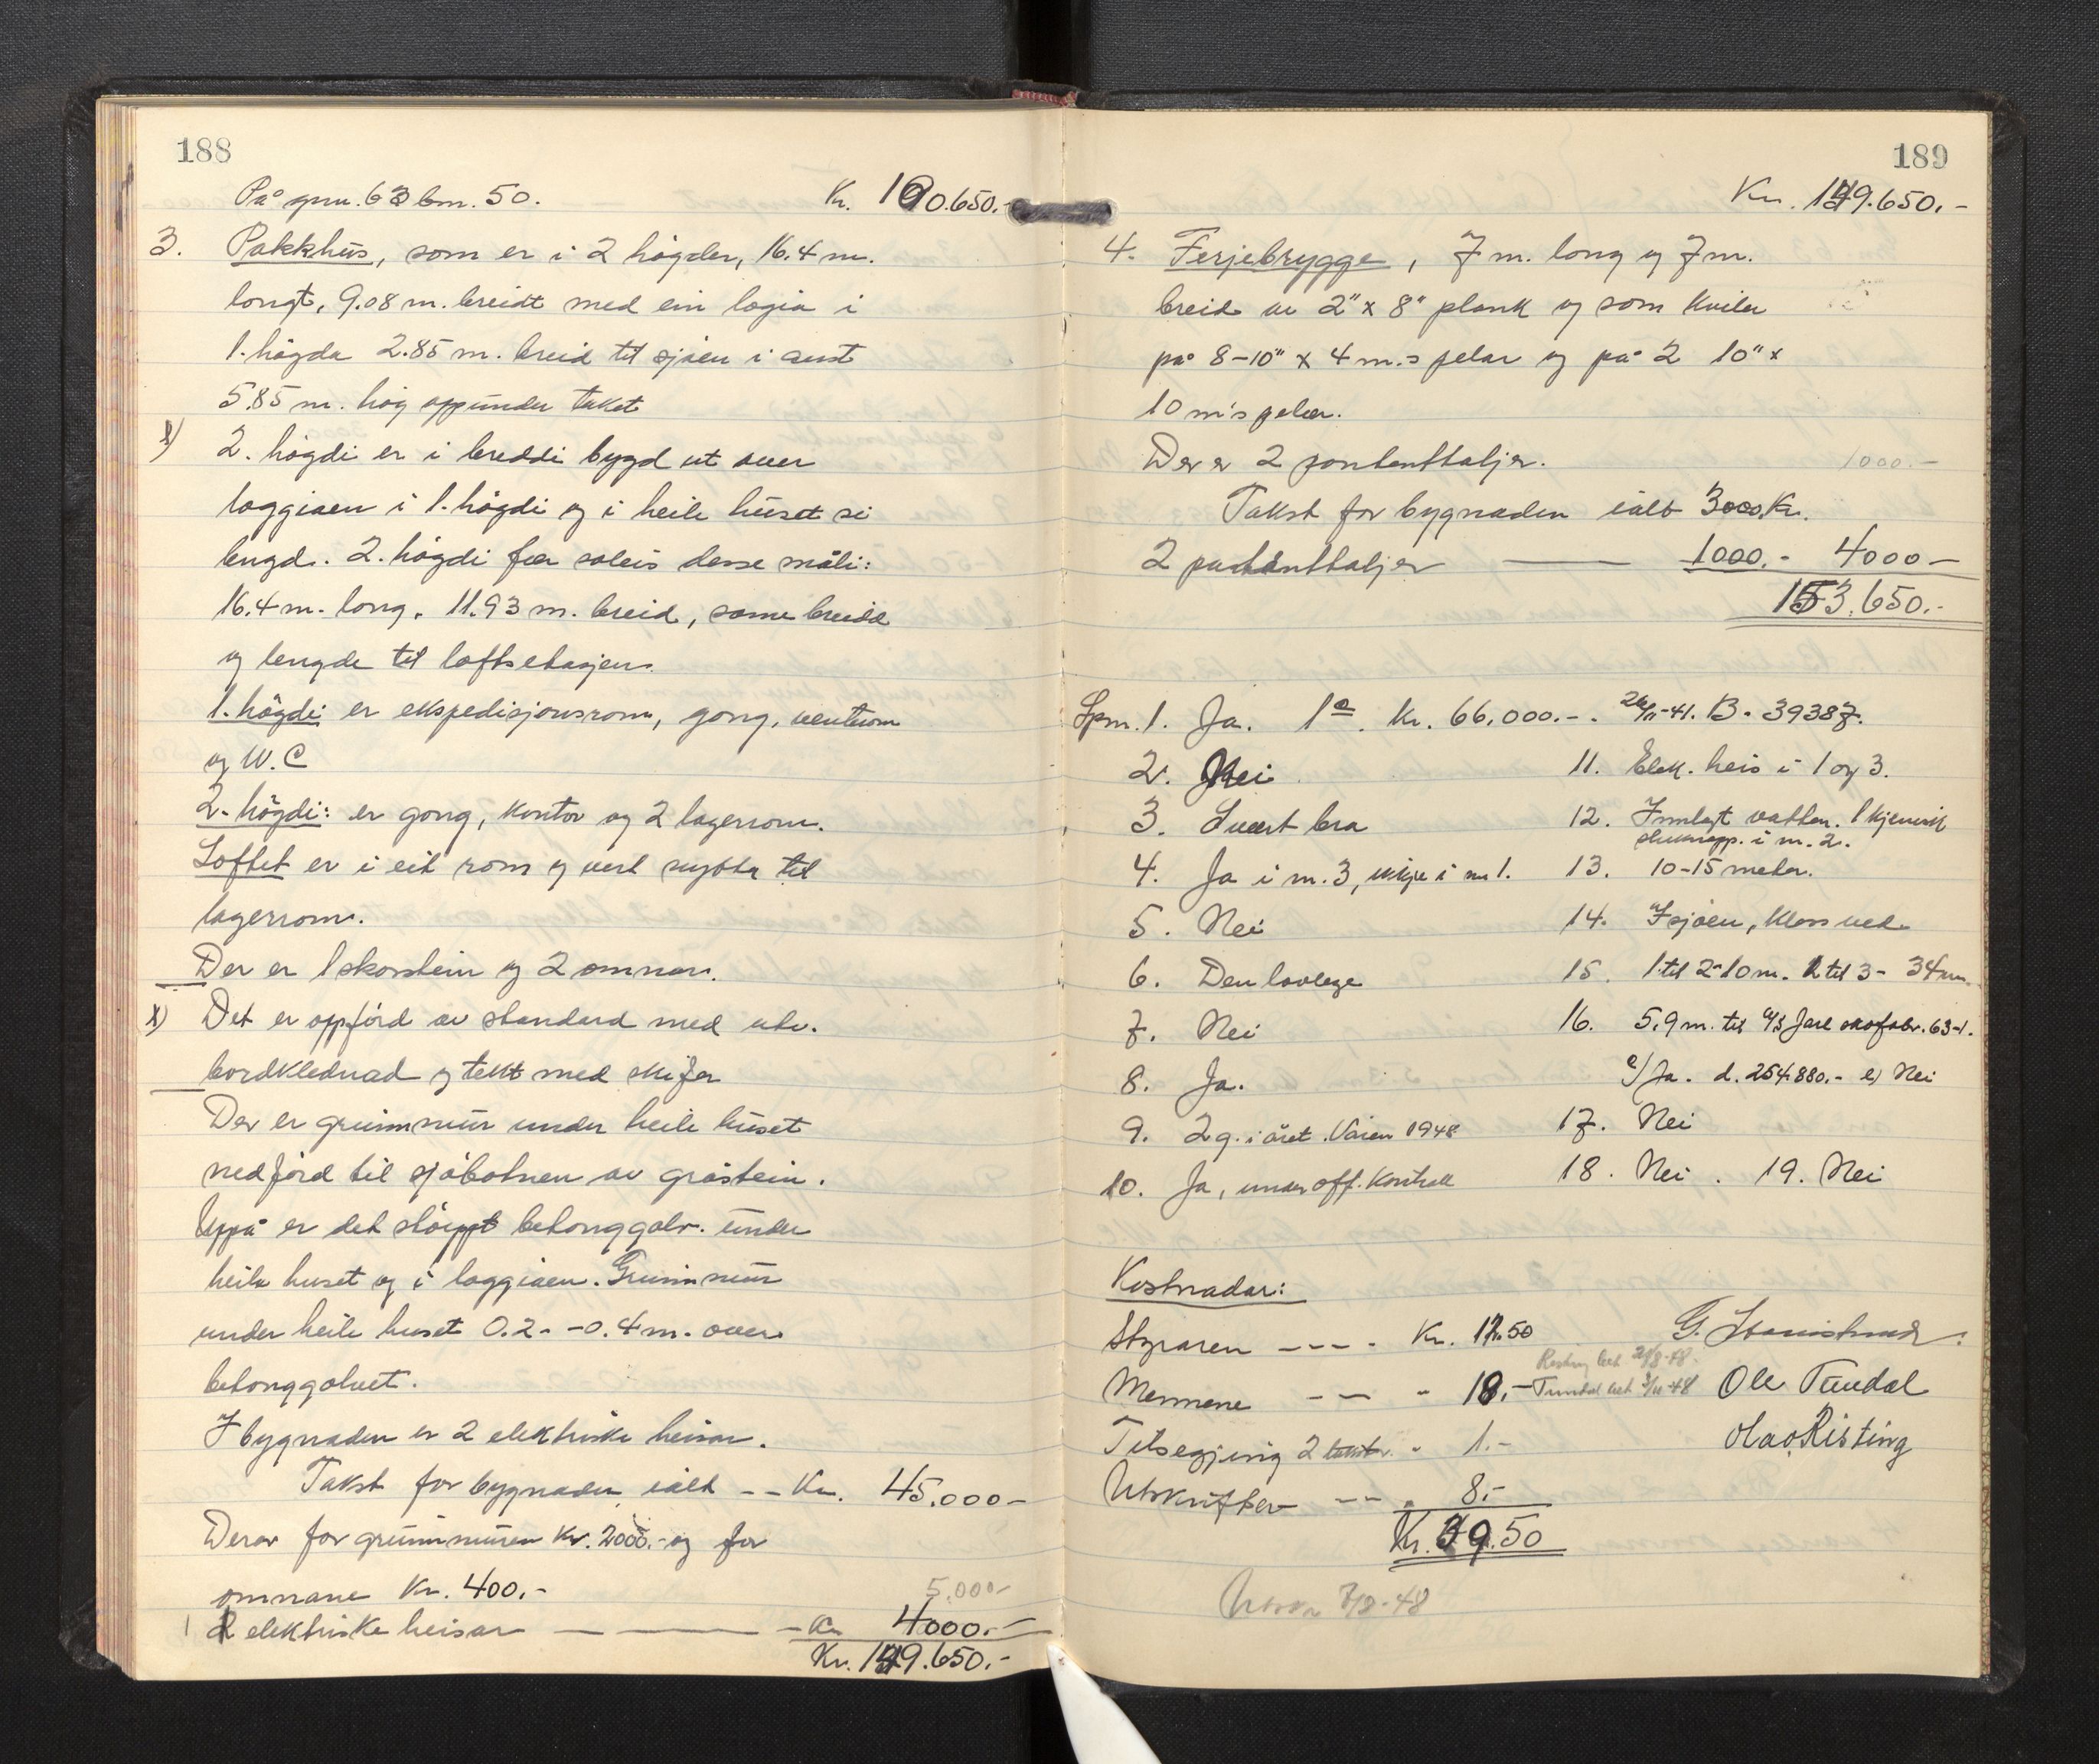 188
På gnr. 63 bnr. 50. Kr. 100.650.-
3. Pakkhus, som er i 2 högder, 16.4 m.
langt, 9.08 m. breidt med ein logia i
1. högda 2.85 m. breid til sjöen i aust
5.85 m. hög oppunder taket
x) 2. högdi er i breddi bygd ut over
loggiaen i 1. högdi og i heile huset si
lengd. 2. högdi fær soleis desse måli:
16.4 m. long, 11.93 m. breid, same breidd
og lengde til loftsetasjen.
1. högdi er ekspedisjonsrom, gong, venterom
og W.C
2. högdi: er gong, kontor og 2 lagerrom.
Loftet er i eit rom og vert nytta til
lagerrom.
Der er 1 skorstein og 2 omnar.
x) Det er oppförd av standard med utv.
bordklednad og tekt med skifer
Der er grunnmur under heile huset
nedförd til sjöbotnen av gråstein.
Uppå er det støypt betonggolv under
heile huset og i loggiaen. Grunnmur
under heile huset 0.2 - 0.4 m. over
betonggolvet.
I bygnaden er 2 elektriske heisar.
Takst for bygnaden ialt -- Kr. 45.000-
Derav for grunnmuren Kr. 2000.- og for
omnane Kr. 400.-
5.000-
2 elektriske heisar - Kr 4000.-
Kr. 149.650.-
189
Kr. 149.650.-
4. Ferjebrygge, 7 m. long og 7 m.
breid av 2" x 8" plank og som kviler
på 8-10" x 4 m.s pelar og på 2 10" x
10 m's pelar.
Der er 2 pontenttaljer. 1000.-
Takst for bygnaden ialt 3000 Kr.
2 patenttaljer 1000.- 4000-
153.650.-
Spm. 1. Ja. 1e. Kr. 66.000.-. 26/11-41. B. 39387.
2. Nei
3. Svært bra
4. Ja i nr. 3, ikkje i nr 1.
5. Nei
6. Den lovlege
7. Nei
8. Ja.
9. 2 g. i året. Våren 1948
10. Ja, under off. kontroll
11. Elek. heis i 1 og 3.
12. Innlagt vatten. 1 kjemisk
slukkapp. i nr. 2.
13. 10-15 meter.
14. I sjöen, kloss ved
15. 1 til 2 - 10 m. 2 til 3 - 34 m.
16. 5.9 m. til A/S Jarl skofabr. 63-1.
c/ Ja. d. 254.880.- e) Nei
17. Nei
18. Nei. 19. Nei
Kostnadar:
Styraren ---- Kr. 12.50
Mennene -- " 18.-
Tilsegjing 2 takstm. " 1.-
Utskrifter -- " 8.-
Kr. 39.50
Risting bet 21/8-48.
Tundal bet 3/11-48
Ole Tundal
Olav Risting
Utskr 7/8-48